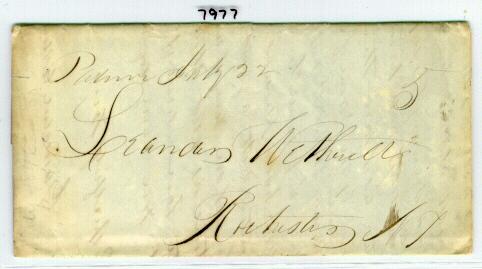 7977
July 22
5
Leander Wetherell
Rochester N Y